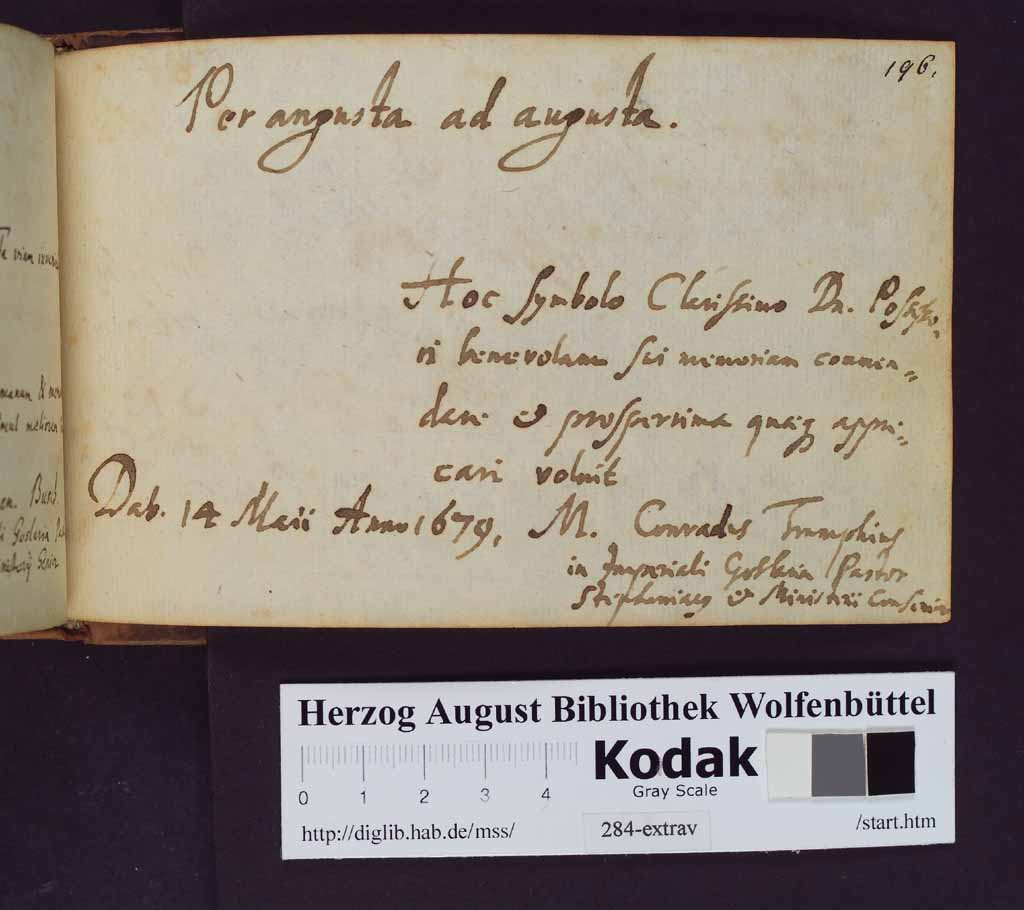 196.
Per angusta ad augusta.
Hoc Symbolo Clarissimo Dn. Possesso-
ri benevolam sui memoriam commen-
dare & prosperrima quæq; appre-
cari voluit
Dab. 14 Maii Anno 1679,
M. Conradus Trumphius
in Imperiali Goslaria Pastor
Stephaniacus & Ministerii Consenior
Herzog August Bibliothek Wolfenbüttel
Kodak
Gray Scale
0 1 2 3 4
http://diglib.hab.de/mss/
284-extrav
/start.htm